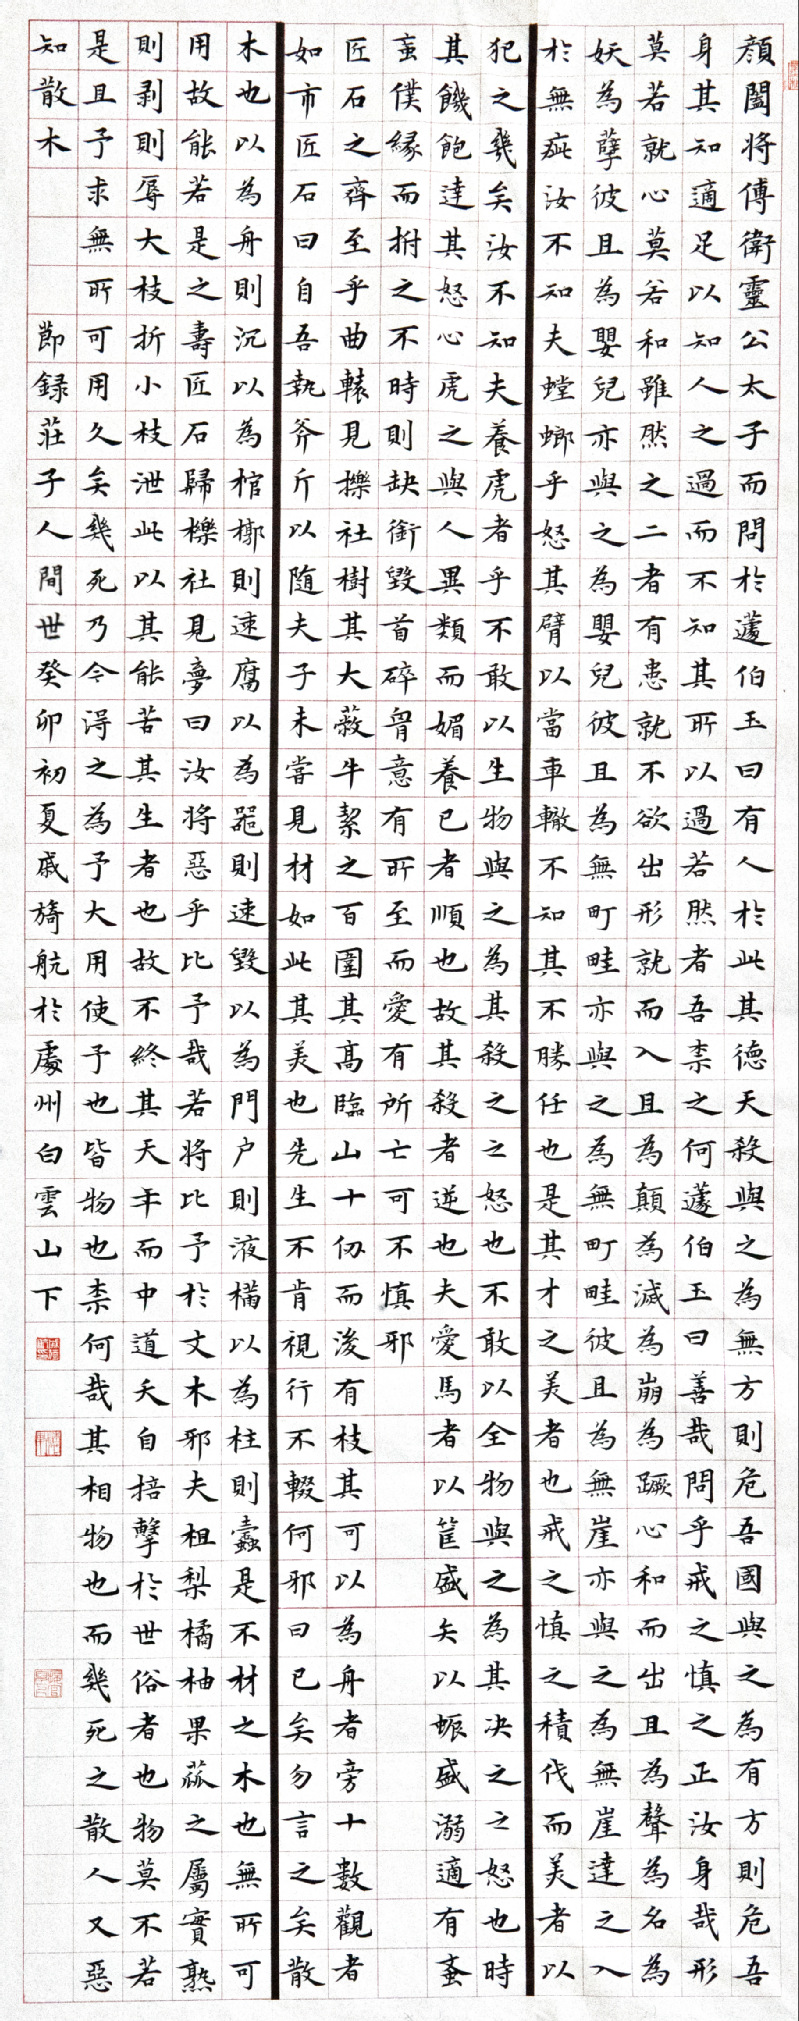 顏闔將傅衛靈公太子而問於蘧伯玉曰有人於此其德天殺與之為無方則危吾國與之為有方則危吾
身其知適足以知人之過而不知其所以過若然者吾柰之何蘧伯玉曰善哉問乎戒之慎之正汝身哉形
莫若就心莫若和雖然之二者有患就不欲出形就而入且為顛為滅為崩為蹶心和而出且為聲為名為
妖為孽彼且為嬰兒亦與之為嬰兒彼且為無町畦亦與之為無町畦彼且為無崖亦與之為無崖達之入
於無疵汝不知夫螳螂乎怒其臂以當車轍不知其不勝任也是其才之美者也戒之慎之積伐而美者以
犯之幾矣汝不知夫養虎者乎不敢以生物與之為其殺之之怒也不敢以全物與之為其決之之怒也時
其饑飽達其怒心虎之與人異類而媚養已者順也故其殺者逆也夫愛馬者以筐盛矢以蜄盛溺適有蚉
䖟僕緣而拊之不時則缺銜毀首碎胷意有所至而愛有所亡可不慎邪
匠石之齊至乎曲轅見櫟社樹其大蔽牛絜之百圍其高臨山十仞而後有枝其可以為舟者旁十數觀者
如市匠石曰自吾執斧斤以隨夫子未嘗見材如此其美也先生不肯視行不輟何邪曰已矣勿言之矣散
木也以為舟則沉以為棺槨則速腐以為器則速毀以為門户則液樠以為柱則蠹是不材之木也無所可
用故能若是之壽匠石歸櫟社見夢曰汝將惡乎比予哉若將比予於文木邪夫柤梨橘柚果蓏之屬實熟
則剥則辱大枝折小枝泄此以其能苦其生者也故不終其天年而中道夭自掊擊於世俗者也物莫不若
是且予求無所可用久矣幾死乃今得之為予大用使予也皆物也柰何哉其相物也而幾死之散人又惡
知散木 節録莊子人間世癸卯初夏戚旖航於處州白雲山下